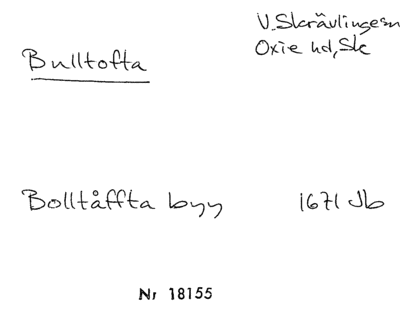 Bulltofta
V. Skrävlinge sn
Oxie hd, Sk
Bolltåffta byy 1671 Jb
Nr 18155